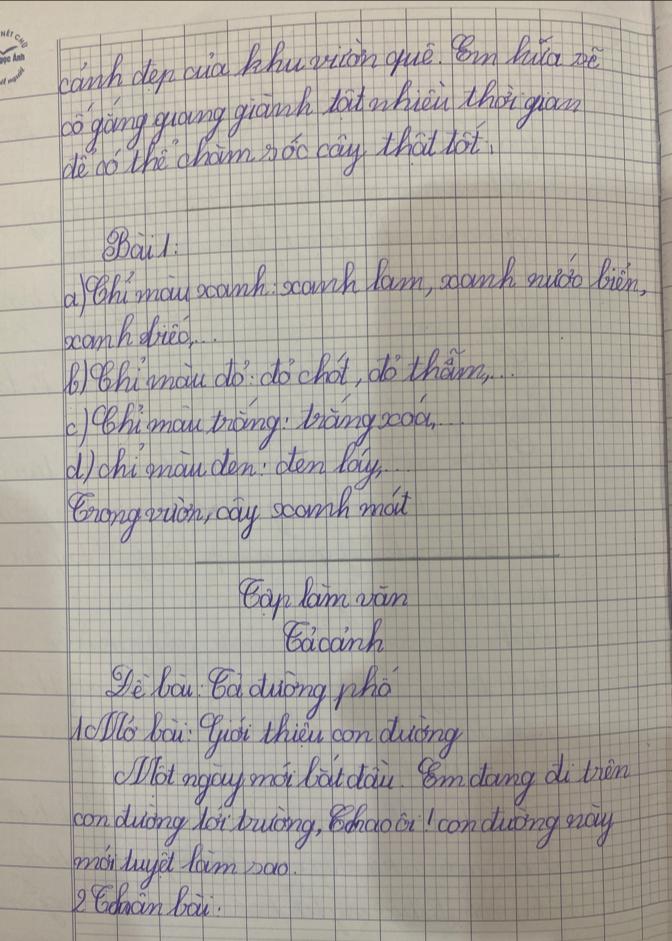 NÉT CHỮ
Ngọc Ánh
cảnh đẹp của khu vườn quê. Em hứa sẽ
cố gắng quang giành tất nhiều thời gian
để có thể chăm sóc cây thật tốt.
Bài 1:
a) Chỉ màu xanh: xanh lam, xanh nước biển,
xanh biếc,...
b) Chỉ màu đỏ: đỏ chót, đỏ thẫm,...
c) Chỉ màu trắng: trắng xoá,...
d) chỉ màu đen: đen láy,...
Trong vườn, cây xanh mát
Tập làm văn
Tả cảnh
Đề bài: Tả đường phố
1. Mở bài: Giới thiệu con đường
Một ngày mới bắt đầu. Em đang đi trên
con đường tới trường, Chao ôi! con đường này
mới tuyệt làm sao.
2 Thân bài: